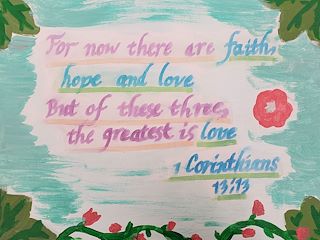 For now there are faith,
hope and love
But of these three,
the greatest is love
1 Corinthians
13:13